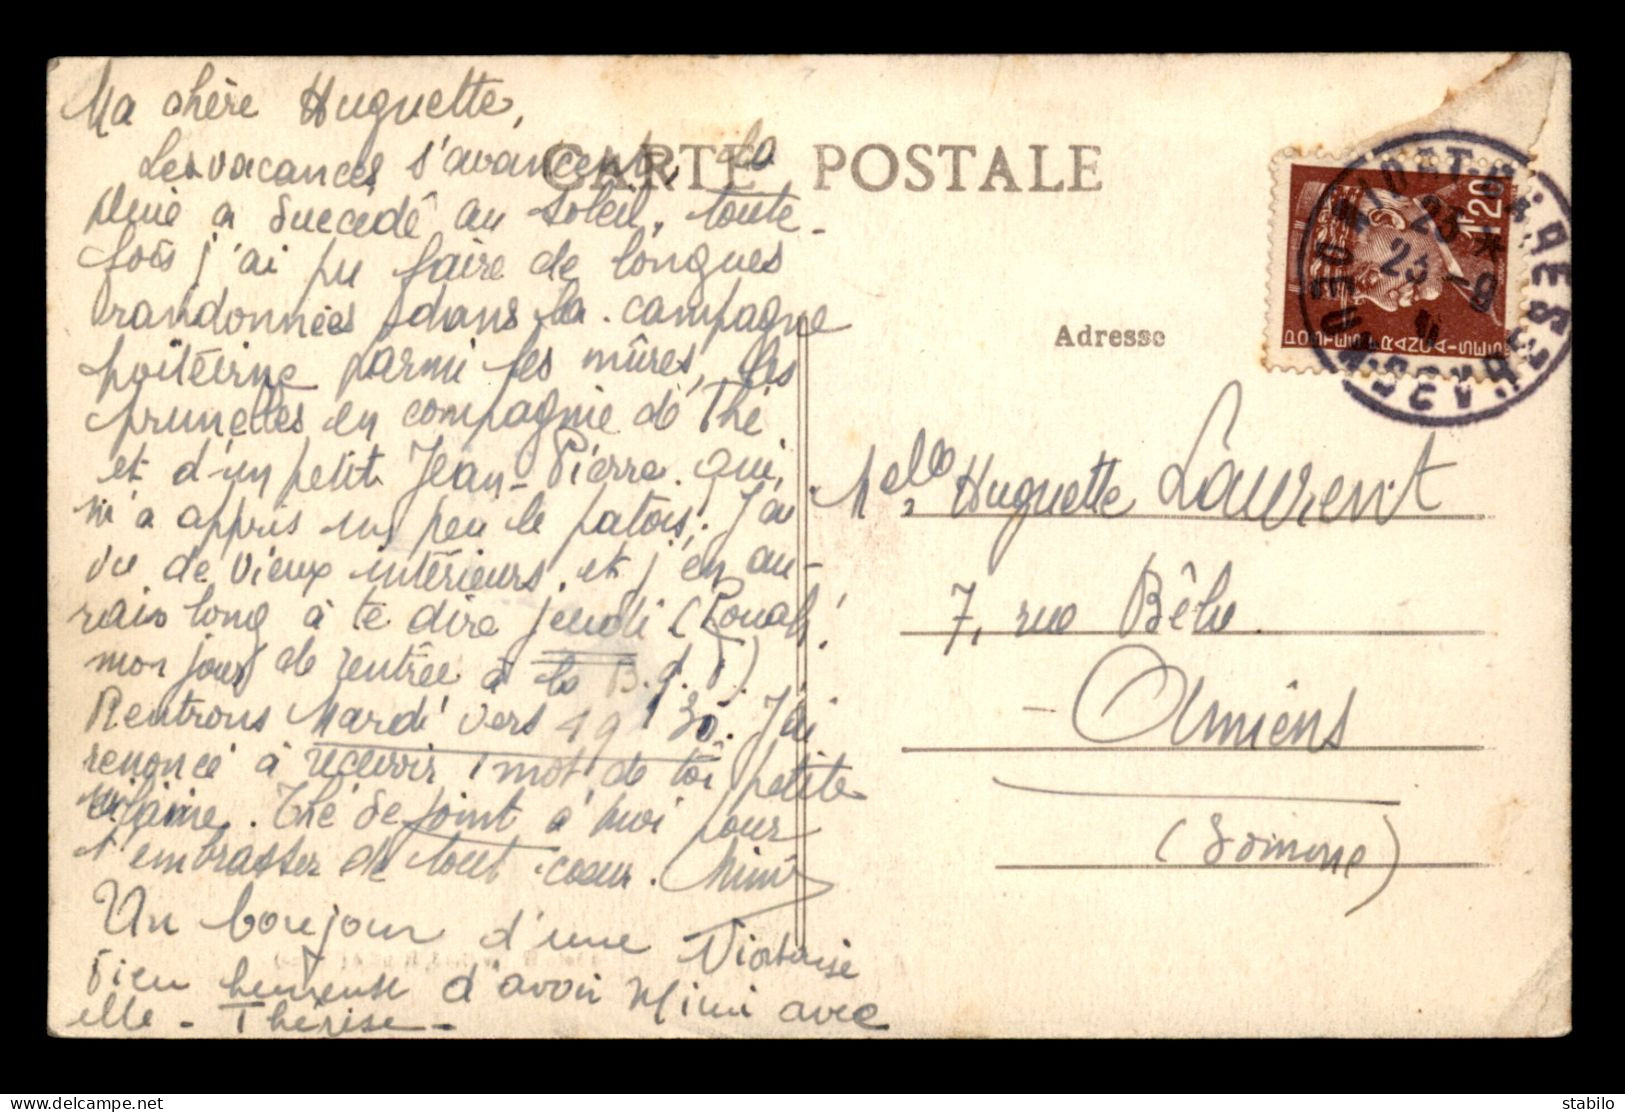 Ma chère Huguette,
Les vacances s'avancent, la
pluie a succédé au soleil, toute-
fois j'ai pu faire de longues
randonnées dans la campagne
poitevine parmi les mûres, les
prunelles en compagnie de Thé
et d'un petit Jean-Pierre qui,
m'a appris un peu le patois. J'ai
vu de vieux intérieurs, et j'en au-
rais long à te dire jeudi
mon jour de rentrée à la B.d.
Rentrons Mardi vers 19 h 30. J'ai
renoncé à recevoir 1 mot de toi petite
vilaine. Thé se joint à moi pour
t'embrasser de tout coeur. Mimi
Un bonjour d'une Niortaise
bien heureuse d'avoir Mimi avec
elle - Thérèse -
CARTE POSTALE
Adresse
1F20
POSTES FRANÇAISES
NIORT
23 -9
DEUX-SEVRES
Melle Huguette Laurent
7, rue Bêlu
- Amiens
(Somme)
stabilo